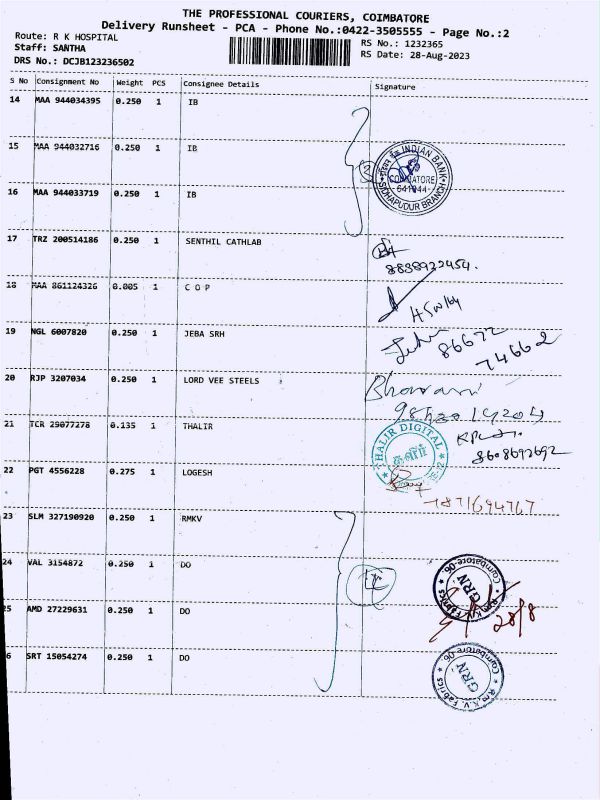 THE PROFESSIONAL COURIERS, COIMBATORE
Delivery Runsheet - PCA - Phone No.:0422-3505555 - Page No.:2
Route: R K HOSPITAL
RS No.: 1232365
Staff: SANTHA
RS Date: 28-Aug-2023
DRS No.: DCJB123236502
S No Consignment No Weight PCS Consignee Details Signature
14 MAA 944034395 0.250 1 IB
15 MAA 944032716 0.250 1 IB
INDIAN BANK
COIMBATORE
641044
SIDHAPUDUR BRANCH
16 MAA 944033719 0.250 1 IB
17 TRZ 200514186 0.250 1 SENTHIL CATHLAB
8838922454.
18 MAA 861124326 0.005 1 C O P
19 NGL 6007820 0.250 1 JEBA SRH
86672
74662
20 RJP 3207034 0.250 1 LORD VEE STEELS
21 TCR 29077278 0.135 1 THALIR
THALIR DIGITAL
8608692692
22 PGT 4556228 0.275 1 LOGESH
7871694767
23 SLM 327190920 0.250 1 RMKV
24 VAL 3154872 0.250 1 DO
Rm.K.V. Fabrics
GRN
Coimbatore-06.
25 AMD 27229631 0.250 1 DO
28/8
6 SRT 15054274 0.250 1 DO
Rm.K.V. Fabrics
GRN
Coimbatore-06.